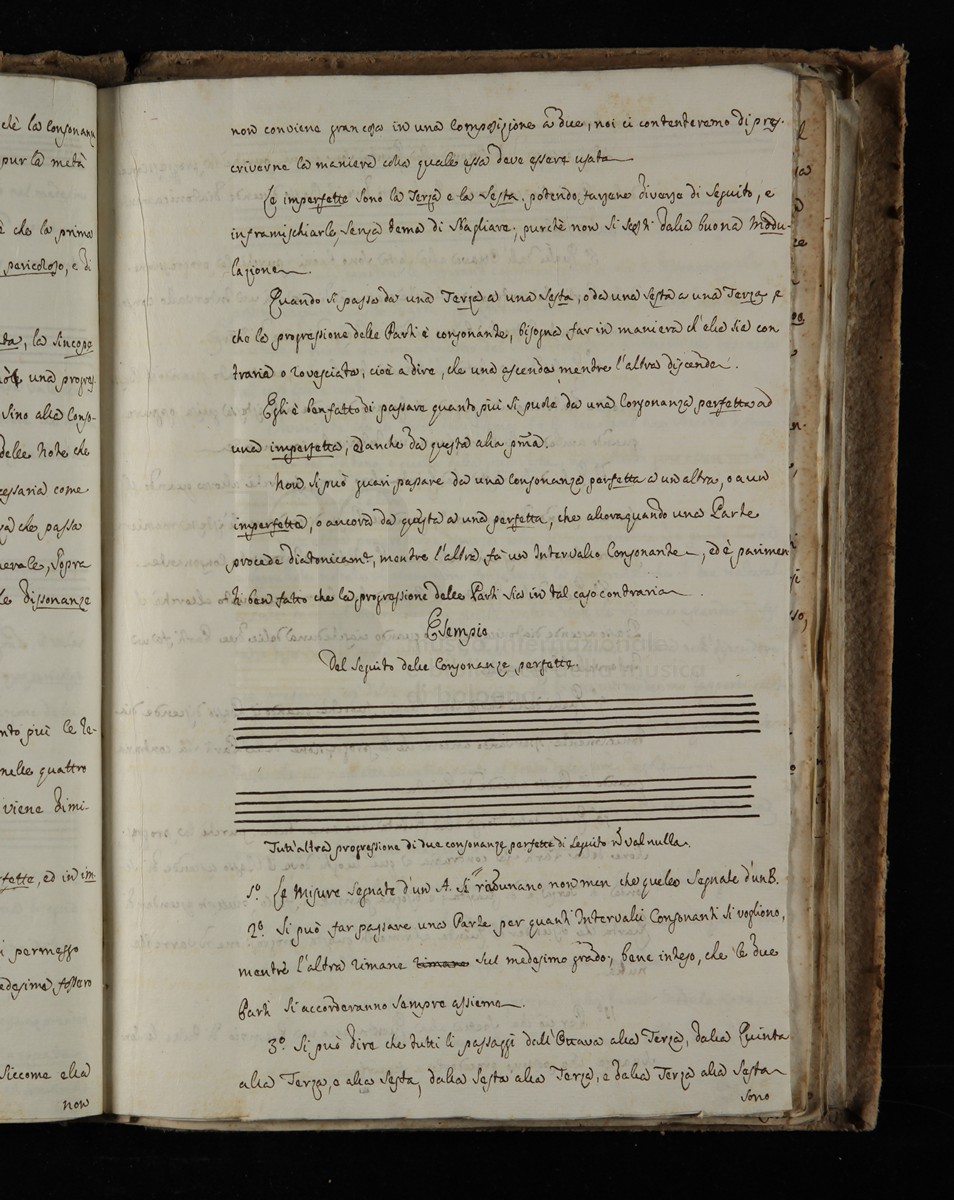 chè la consonan
pur la metà
è che la prima
pericoloso, e di
la sincope
una progres
sino alla conso-
delle note che
cessaria come
che passa
sopra
le dissonanze
più le
nelle quattro
viene dimi-
ed in im-
permesso
edesima fossero
siccome ella
non
non conviene gran cosa in una Composizione a due, noi ci contenteremo di pres-
criverne la maniera colla quale essa deve essere usata.
Le imperfette sono la Terza e la Sesta, potendo farsene diverse di seguito, e
inframischiarle senza tema di sbagliare, purchè non si scosti dalla buona Modu-
lazione.
Quando si passa da una Terza a una Sesta, o da una Sesta a una Terza e
che la progressione delle Parti è consonante, bisogna far in maniera ch'ella sia con
traria o rovesciata, cioè a dire, che una ascenda mentre l'altra discende.
Egli è ben fatto di passare quanto più si puole da una Consonanza perfetta ad
una imperfetta, ed anche da questa alla pma.
Non si può guari passare da una Consonanza perfetta a un altra, o a un
imperfetta, o ancora da questa a una perfetta, che allora quando una Parte
procede diatonicamte, mentre l'altra fa un Intervallo Consonante, ed è parimen
ti ben fatto che la progressione delle Parti sia in tal caso contraria.
Esempio
Del seguito delle Consonanze perfette.
Tutt'altra progressione di due consonanze perfette di seguito val nulla.
1º. Le Misure segnate d'un A. si ribunano, non men che quelle segnate d'un B.
2º. Si può far passare una Parte per quanti Intervalli Consonanti si vogliono,
mentre l'altra rimane rimane sul medesimo grado; bene inteso, che le due
Parti si accorderanno sempre assieme.
3º. Si può dire che tutti li passaggi dall'Ottava alla Terza, dalla Quinta
alla Terza, e alla Sesta, dalla Sesta alla Terza, e dalla Terza alla Sesta
sono